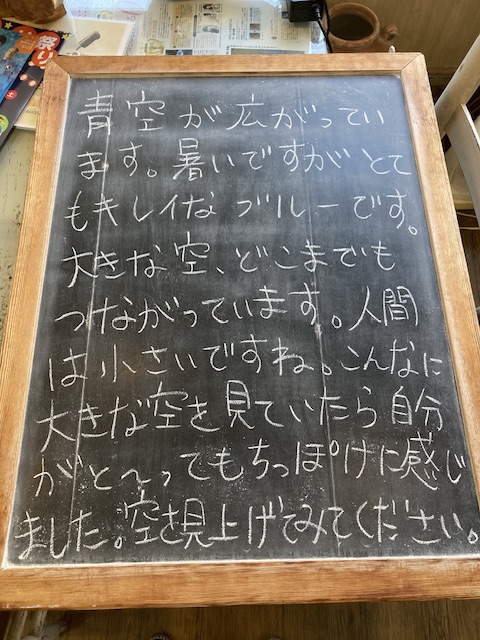 青空が広がってい
ます。暑いですがとて
もキレイなブルーです。
大きな空、どこまでも
つながっています。人間
は小さいですね。こんなに
大きな空を見ていたら自分
がと〜ってもちっぽけに感じ
ました。空を見上げてみてください。
祭り